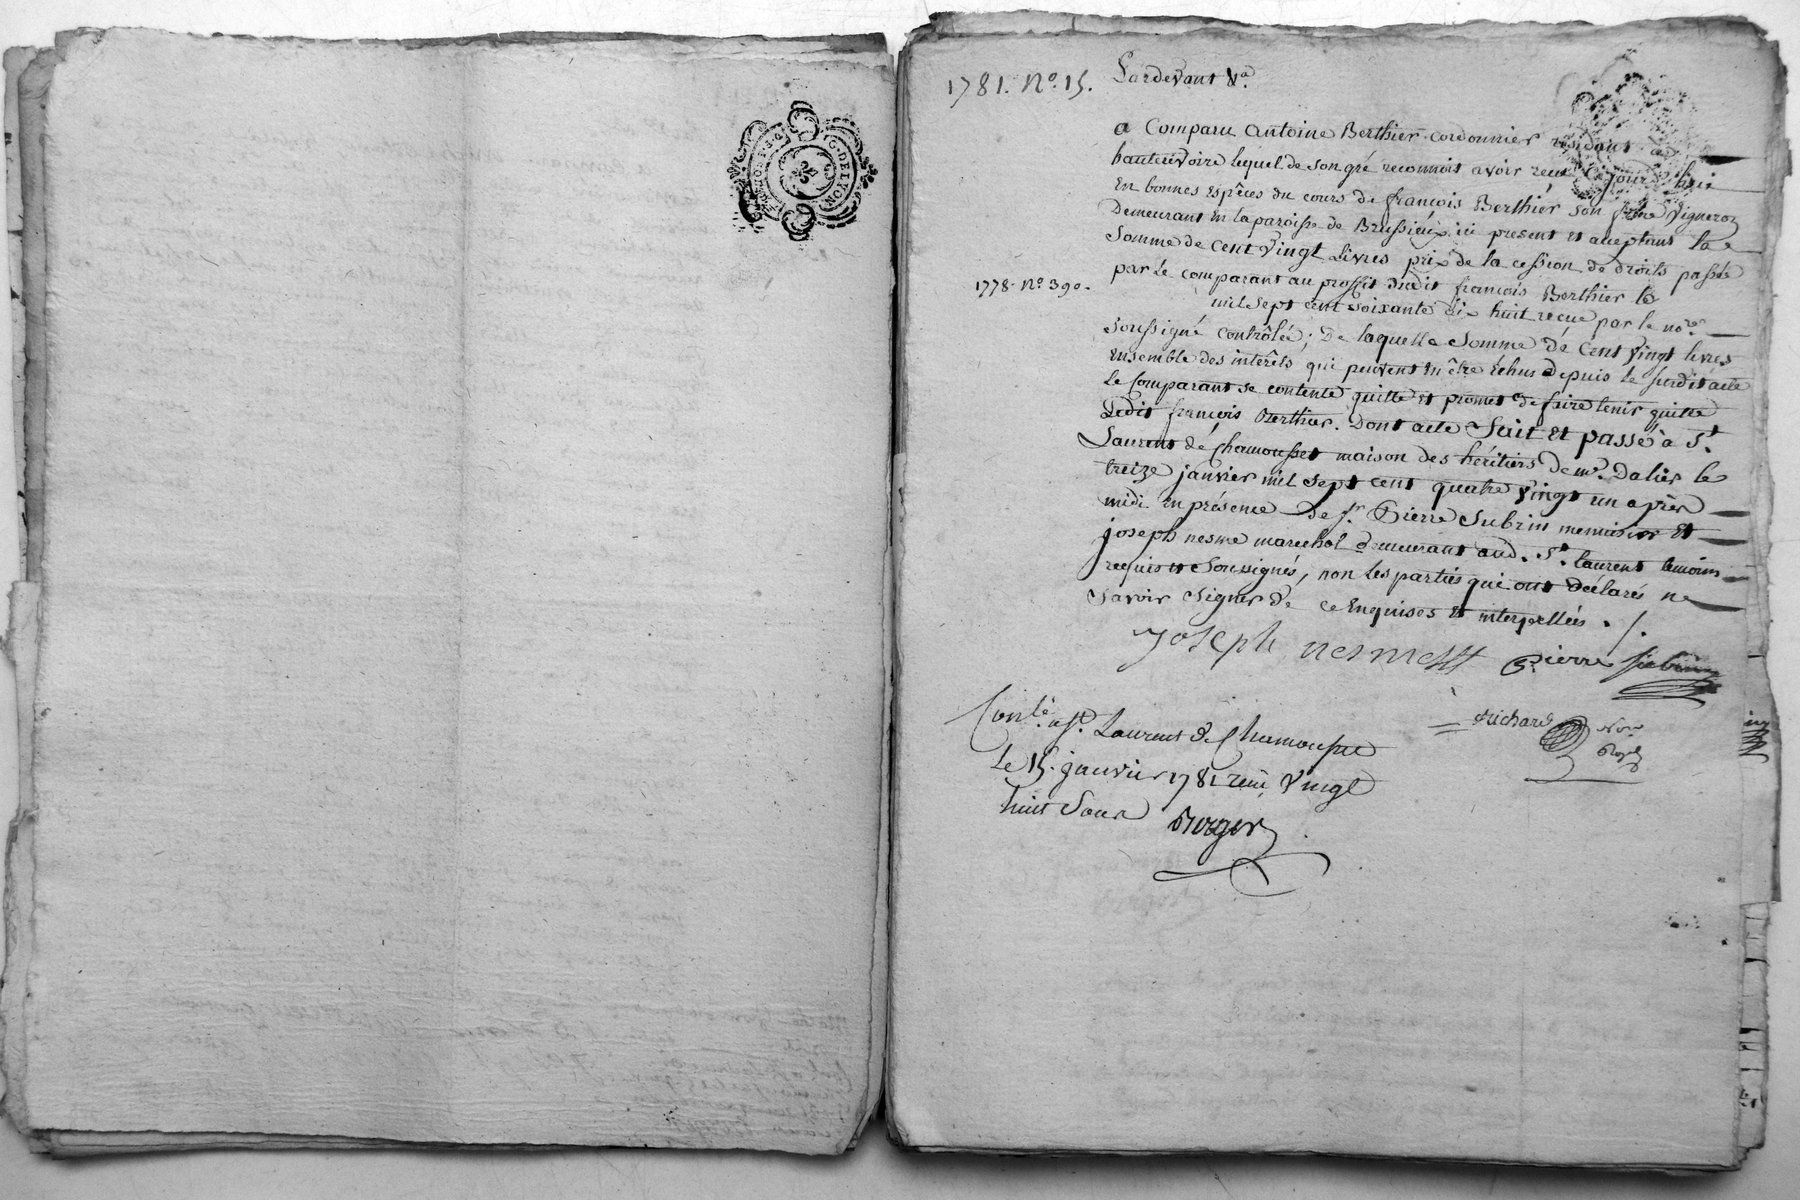 G. DE LYON
1781. N.º 15.
Pardevant &.ª
a Comparu antoine Berthier cordonnier résidant a
hauterivoire lequel de son gré reconnois avoir recu Cejourd'hui
En bonnes Espêces du cours de françois Berthier son frère Vigneron
Demeurant En la paroisse de Brussieux ici present et aceptant la
Somme de Cent Vingt Livres prix de la cession de droits passée
par Le comparant au proffit dudit françois Berthier le
1778. N.º 390.
mil sept cent soixante dix huit recue par le no.re
soussigné contrôlée ; De laquelle Somme de Cent Vingt livres
Ensemble des intérêts qui peuvent en être échus depuis le susdit acte
Le Comparant se contente quitte et promet de faire tenir quitte
Ledit françois Berthier. Dont acte Fait Et passé à S.t
Laurent de Chamousset maison des héritiers de m.e Dalier le
treize janvier mil sept cent quatre Vingt un après
midi En présence de s.r Pierre Subrin menuisier Et
joseph nesme marechal demeurant aud. S.t laurent temoins
requis et Soussignés, non les parties qui ont déclarés ne
savoir signer de ce Enquises Et interpellées . /.
Joseph nesme Pierre subrin
Richard No.re Royal
Con.lé a S.t Laurent de Chamousset
Le 15. janvier 1781 recu Vingt
huit Sous
Berger